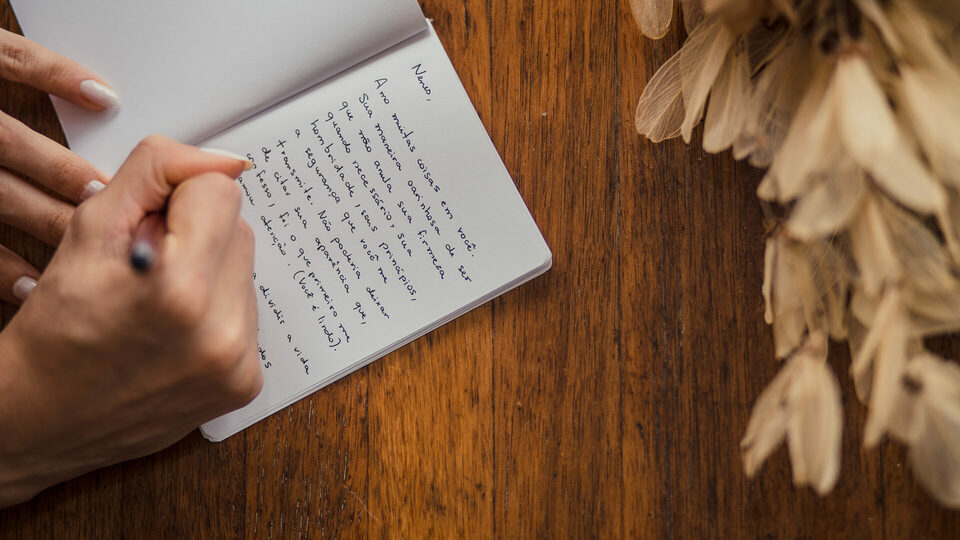 Nemo,
Amo muitas coisas em você.
Sua maneira carinhosa de ser
que não anula sua firmeza
quando necessário, sua
hombridade, seus princípios,
a segurança que você me
transmite. Não poderia deixar
de citar sua aparência que,
foi o que primeiro me
(Você é lindo).
dividir a vida